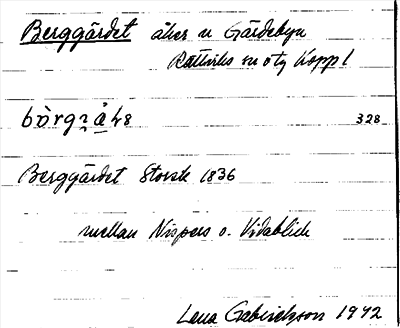 Berggärdet åker n Gärdebyn
Rättviks sn Kopp l
328
Berggärdet Storsk 1836
mellan Nispers o. Vidablick
Lena Gabrielsson 1972